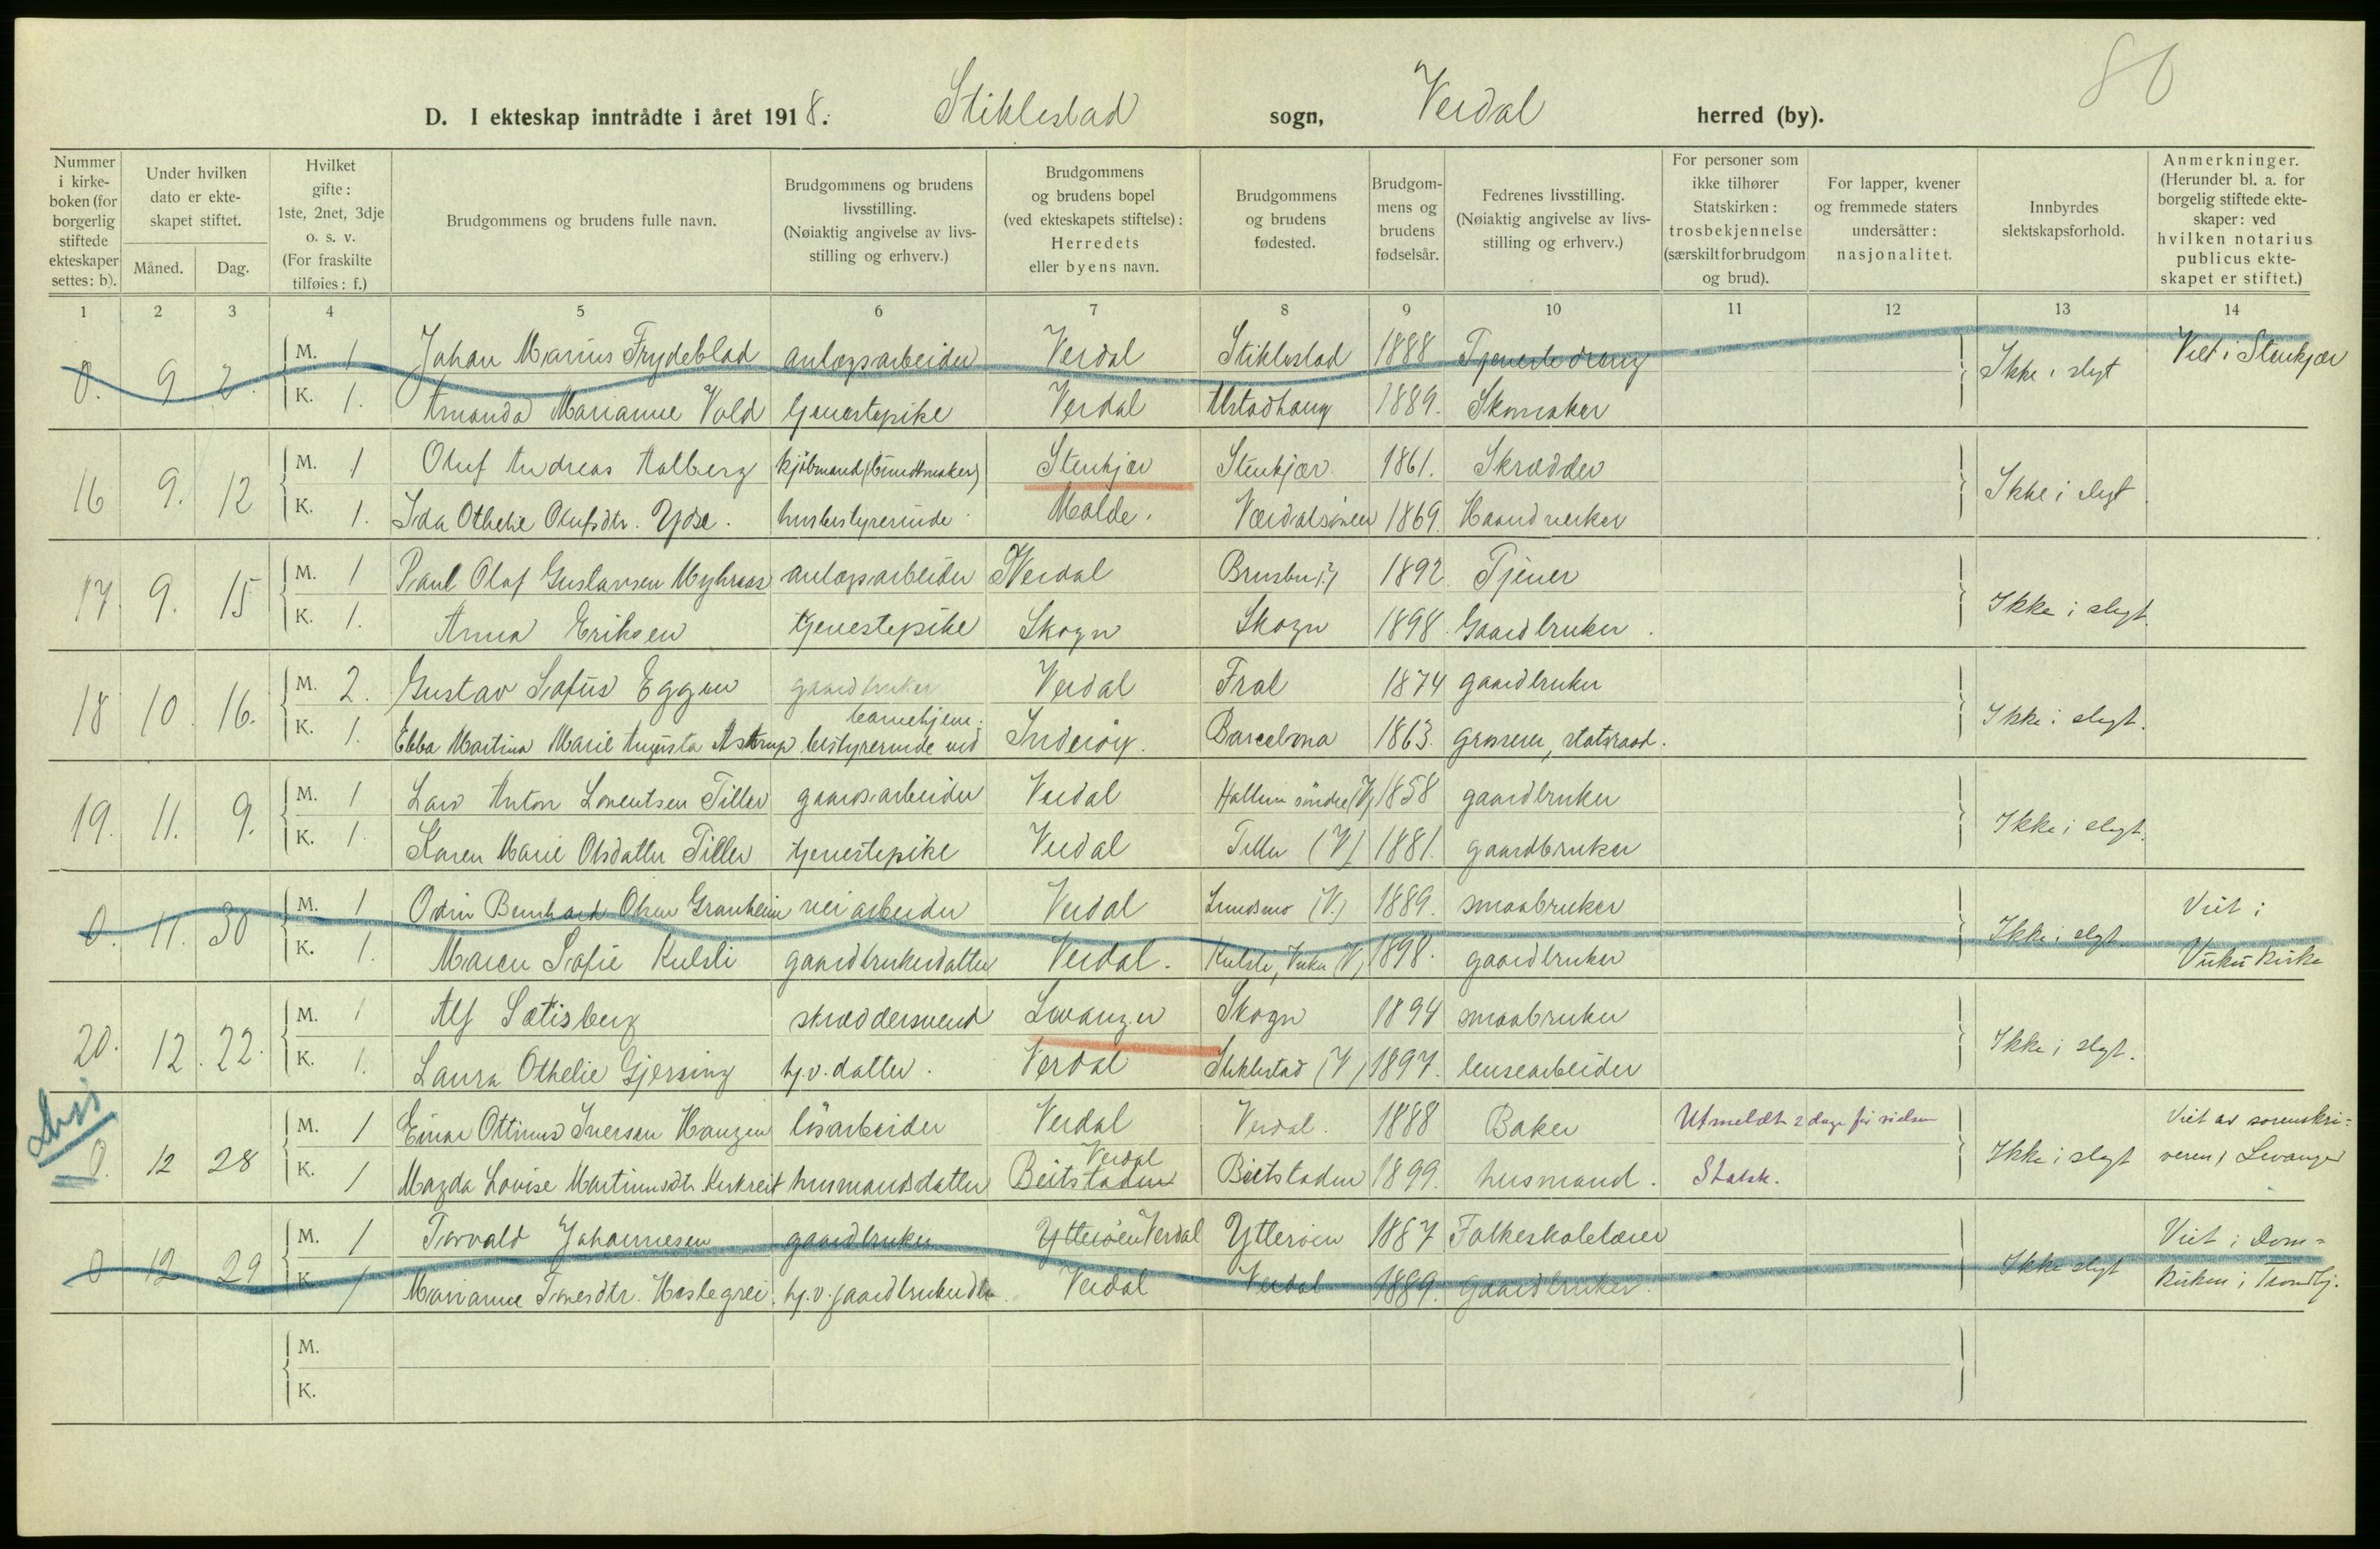 80
D. I ekteskap inntrådte i året 1918. Stiklestad sogn, Verdal herred (by).
Nummer i kirke-boken (for borgerlig stiftede ekteskaper settes: b).
Under hvilken dato er ekte-skapet stiftet.
Måned. Dag.
Hvilket gifte: 1ste, 2net, 3dje o. s. v. (For fraskilte tilføies: f.)
Brudgommens og brudens fulle navn.
Brudgommens og brudens livsstilling. (Nøiaktig angivelse av livs-stilling og erhverv.)
Brudgommens og brudens bopel (ved ekteskapets stiftelse): Herredets eller byens navn.
Brudgommens og brudens fødested.
Brudgom-mens og brudens fødselsår.
Fedrenes livsstilling. (Nøiaktig angivelse av livs-stilling og erhverv.)
For personer som ikke tilhører Statskirken: trosbekjennelse (særskilt for brudgom og brud).
For lapper, kvener og fremmede staters undersåtter: nasjonalitet.
Innbyrdes slektskapsforhold.
Anmerkninger. (Herunder bl. a. for borgelig stiftede ekte-skaper: ved hvilken notarius publicus ekte-skapet er stiftet.)
1 2 3 4 5 6 7 8 9 10 11 12 13 14
0. 9 2. M. 1 Johan Marius Frydeblad anlægsarbeider Verdal Stiklestad 1888 Tjenestedreng Ikke i slegt Viet i Stenkjær
K. 1. Amanda Marianne Vold tjenestepike Verdal Alstadhaug 1889. Skomaker
16 9. 12 M. 1 Oluf Andreas Aalberg kjøbmand (buntmaker) Stenkjær Stenkjær 1861. Skrædder Ikke i slegt
K. 1. Ida Othelie Olufsdtr. Ydse. husbestyrerinde Molde. Værdalsøren 1869. Haandverker
17. 9. 15 M. 1 Paul Olaf Gustavsen Myhraas anlægsarbeider Verdal 1892. Tjener Ikke i slegt.
K. 1. Anna Eriksen tjenestepike Skogn Skogn 1898. Gaardbruker.
18 10. 16. M. 2. Gustav Sofus Eggen gaardbruker Verdal Frol 1874 gaardbruker Ikke i slegt.
K. 1. Ebba Martina Marie Augusta Astrup bestyrerinde ved barnehjem. Inderøy. Barcelona 1863. grosserer, statsraad.
19. 11. 9. M. 1 Lars Anton Lorentsen Tiller gaardsarbeider Verdal Hallem søndre (V) 1858 gaardbruker Ikke i slegt.
K. 1. Karen Marie Olsdatter Tiller tjenestepike Verdal Tiller (V) 1881. gaardbruker
0. 11. 30 M. 1 Odin Bernhard Olsen Granheim veiarbeider Verdal (V.) 1889. smaabruker Ikke i slegt Viet i
K. 1. Maren Sofie Kulsli gaardbrukerdatter Verdal. Kulsli, Vuku (V) 1898. gaardbruker Vuku kirke
20. 12. 22. M. 1 Alf Sætisberg skræddersvend Levanger Skogn 1894 smaabruker Ikke i slegt.
K. 1. Laura Othelie Gjersing hj.v. datter. Verdal Stiklestad (V) 1897. lensearbeider
0. 12 28 M. 1 Einar Ottinus Iversen Haugen løsarbeider Verdal Verdal. 1888 Baker Utmeldt 2 dage før vielsen Ikke i slegt Viet av sorenskri-
K. 1 Magda Lovise Martinusdtr. husmandsdatter Beitstaden Verdal Beitstaden 1899. husmand. Statsk. veren i Levanger
0 12 29 M. 1 Torvald Johannesen gaardbruker Ytterøen Verdal Ytterøen 1887 Folkeskolelærer Ikke slegt Viet i Dom-
K. 1 Marianne hj.v. gaardbrukerdtr. Verdal Verdal 1889. gaardbruker. kirken i Trondhj.
M.
K.